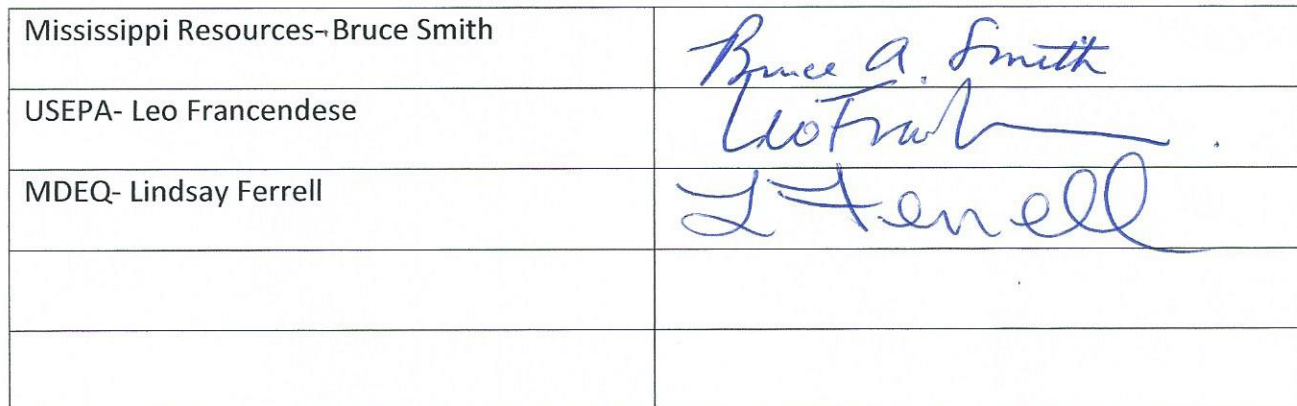 Mississippi Resources- Bruce Smith
Bruce A. Smith
USEPA- Leo Francendese
Leo
MDEQ- Lindsay Ferrell
L Ferrell